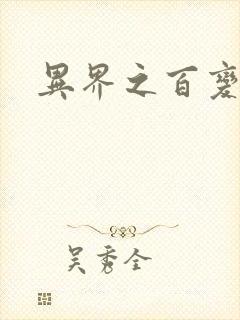 異界之百變
吳秀全